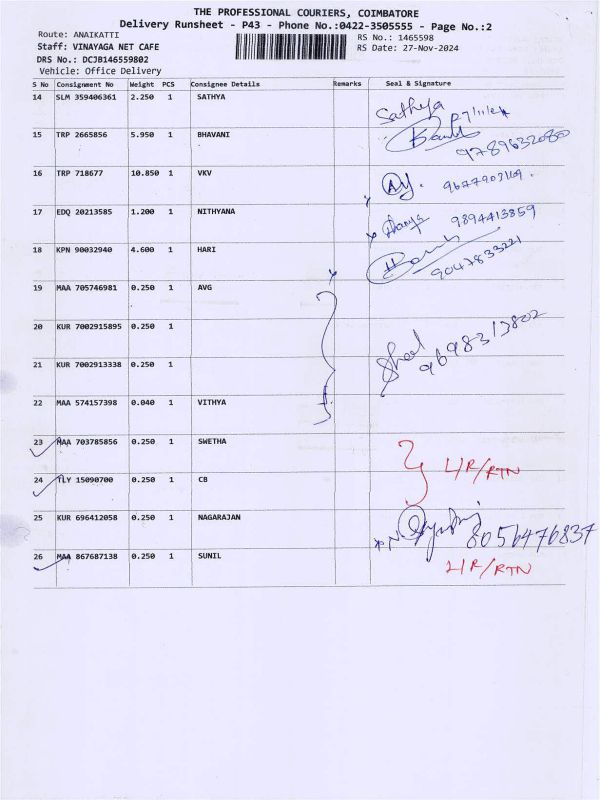 THE PROFESSIONAL COURIERS, COIMBATORE
Delivery Runsheet - P43 - Phone No.:0422-3505555 - Page No.:2
Route: ANAIKATTI
Staff: VINAYAGA NET CAFE
RS No.: 1465598
DRS No.: DCJB146559802
RS Date: 27-Nov-2024
Vehicle: Office Delivery
S No Consignment No Weight PCS Consignee Details Remarks Seal & Signature
14 SLM 359406361 2.250 1 SATHYA Sathya
15 TRP 2665856 5.950 1 BHAVANI 9789632080
16 TRP 718677 10.850 1 VKV
17 EDQ 20213585 1.200 1 NITHYANA 9894413859
18 KPN 90032940 4.600 1 HARI 9047833221
19 MAA 705746981 0.250 1 AVG
20 KUR 7002915895 0.250 1
21 KUR 7002913338 0.250 1 9698313802
22 MAA 574157398 0.040 1 VITHYA
23 MAA 703785856 0.250 1 SWETHA
24 TLY 15090700 0.250 1 CB L/R/RTN
25 KUR 696412058 0.250 1 NAGARAJAN 8056476837
26 MAA 867687138 0.250 1 SUNIL L/R/RTN